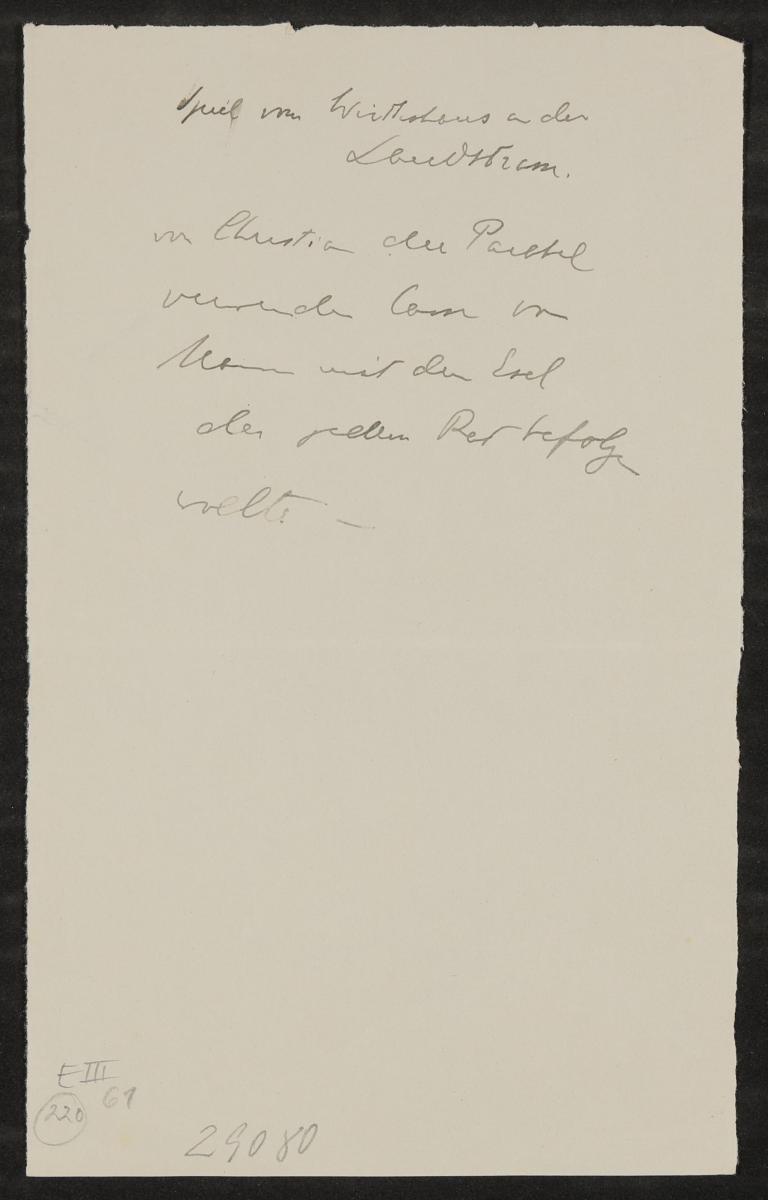 Spiel vom Wirtshaus an der
Landstrasse.
von Christian der Parabel
verwenden kann vom
Mann mit dem Esel
der jedem Rat befolgen
wollte –
E III
220 61
29080